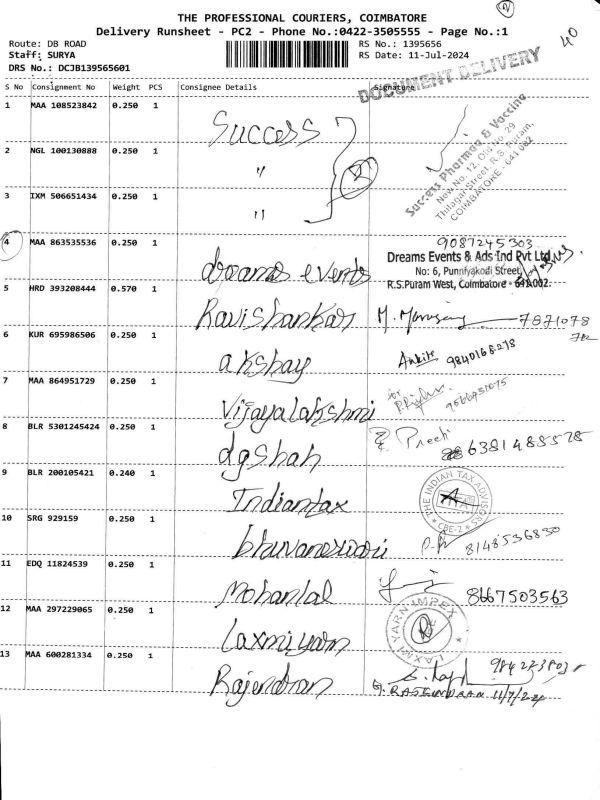 2
40
THE PROFESSIONAL COURIERS, COIMBATORE
Delivery Runsheet - PC2 - Phone No.:0422-3505555 - Page No.:1
Route: DB ROAD
RS No.: 1395656
Staff: SURYA
RS Date: 11-Jul-2024
DRS No.: DCJB139565601
DOCUMENT DELIVERY
S No Consignment No Weight PCS Consignee Details Signature
1 MAA 108523842 0.250 1 Success
Success Pharmaa & Vaccine
New No. 12, Old No. 29
Thilagar Street, R.S. Puram,
COIMBATORE - 641 002
2 NGL 100130888 0.250 1 "
3 IXM 506651434 0.250 1 "
4 MAA 863535536 0.250 1 dreams events
9087245303
Dreams Events & Ads Ind Pvt Ltd
No: 6, Punniyakodi Street,
R.S.Puram West, Coimbatore - 641002.
5 HRD 393208444 0.570 1 Ravishankar
7871078
6 KUR 695986506 0.250 1 akshay
Ankita 9840168278
7 MAA 864951729 0.250 1 Vijayalakshmi
for
8 BLR 5301245424 0.250 1 dgshah
Preeti
6381488578
9 BLR 200105421 0.240 1 Indiantax
THE INDIAN TAX ADVISORS
CBE-2
10 SRG 929159 0.250 1 bhuvaneswari
8148536830
11 EDQ 11824539 0.250 1 Mohanlal
8667503563
12 MAA 297229065 0.250 1 Laxmiyarn
LAXMI YARN IMPEX
13 MAA 600281334 0.250 1 Rajendran
G. RAJENDRAN 11/7/24